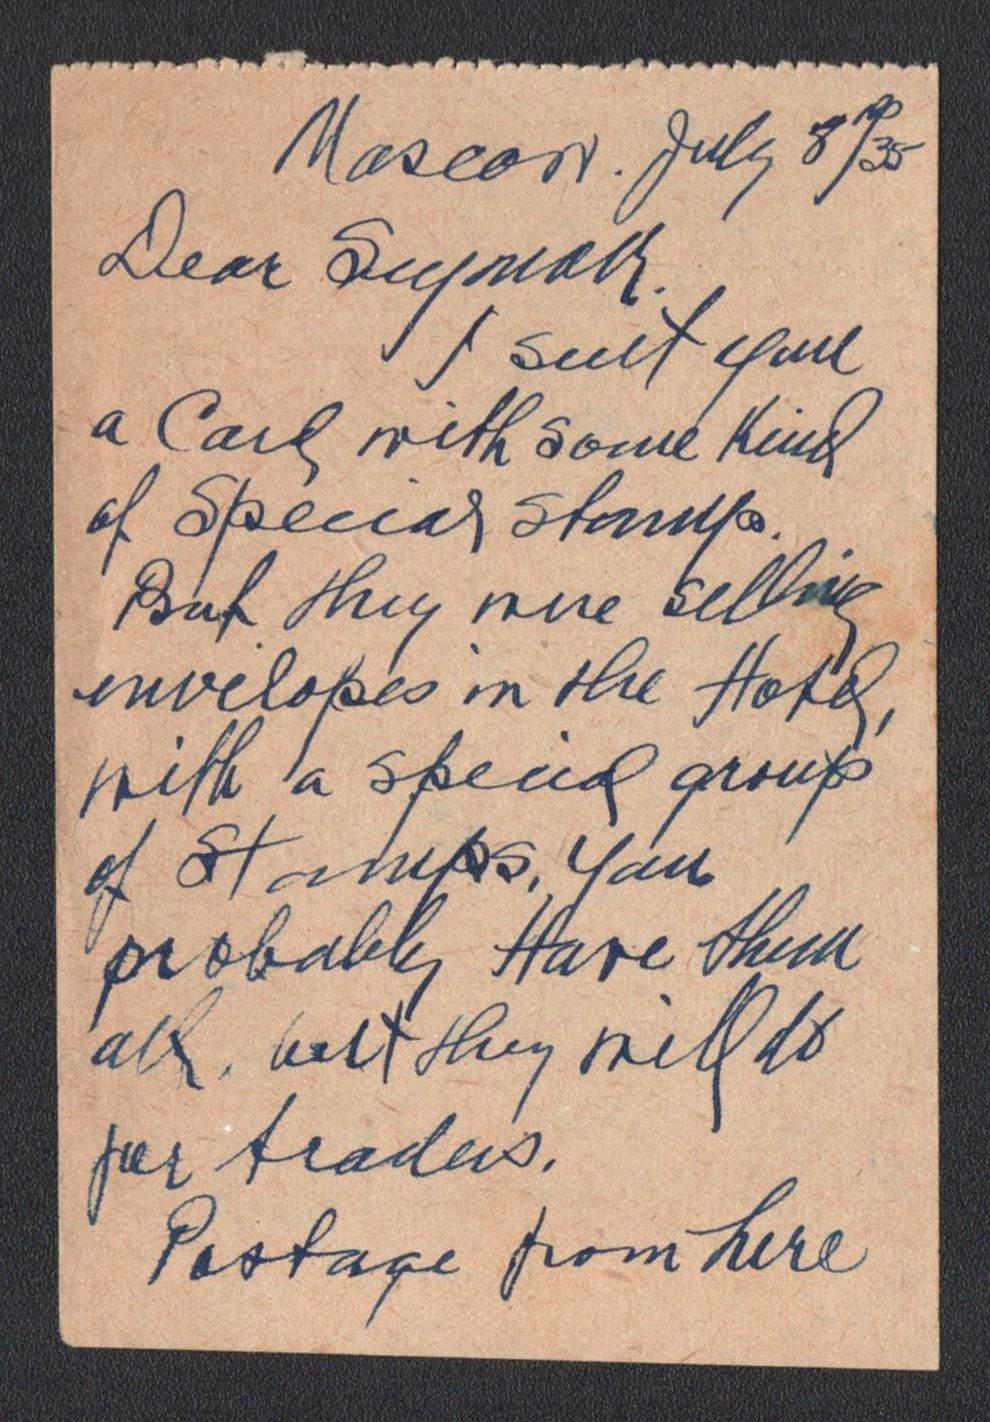 Moscow. July 8th/35
Dear Seymour.
I sent you
a Card with some kind
of Special stamps.
But they were selling
envelopes in the Hotel,
with a special group
of Stamps, you
probably Have them
all. but they will do
for traders.
Postage from here